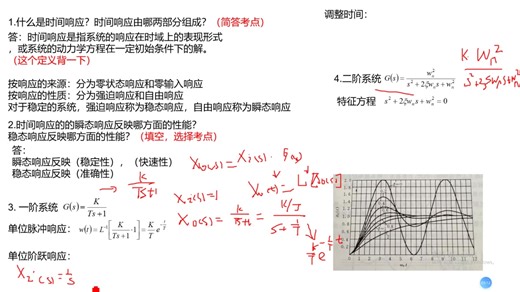 1.什么是时间响应？时间响应由哪两部分组成？（简答考点）
答：时间响应是指系统的响应在时域上的表现形式
，或系统的动力学方程在一定初始条件下的解。
（这个定义背一下）
按响应的来源：分为零状态响应和零输入响应
按响应的性质：分为强迫响应和自由响应
对于稳定的系统，强迫响应称为稳态响应，自由响应称为瞬态响应
2.时间响应的的瞬态响应反映哪方面的性能？
稳态响应反映哪方面的性能？（填空，选择考点）
答：
瞬态响应反映（稳定性），（快速性）
稳态响应反映（准确性）
→ K/(Ts+1)
3. 一阶系统 G(s) = K/(Ts+1)
单位脉冲响应： w(t) = L⁻¹[K/(Ts+1)·1] = K/T e^(-t/T)
单位阶跃响应：
Xi(s)=1/s
Xo(s)=Xi(s)·G(s)
Xi(s)=1
Xo(s)=K/(Ts+1)=(K/T)/(s+1/T)
调整时间：
4.二阶系统 G(s) = wn²/(s²+2ξwns+wn²)
K Wn²/(s²+2ξwns+wn²)
特征方程 s²+2ξwns+wn² = 0